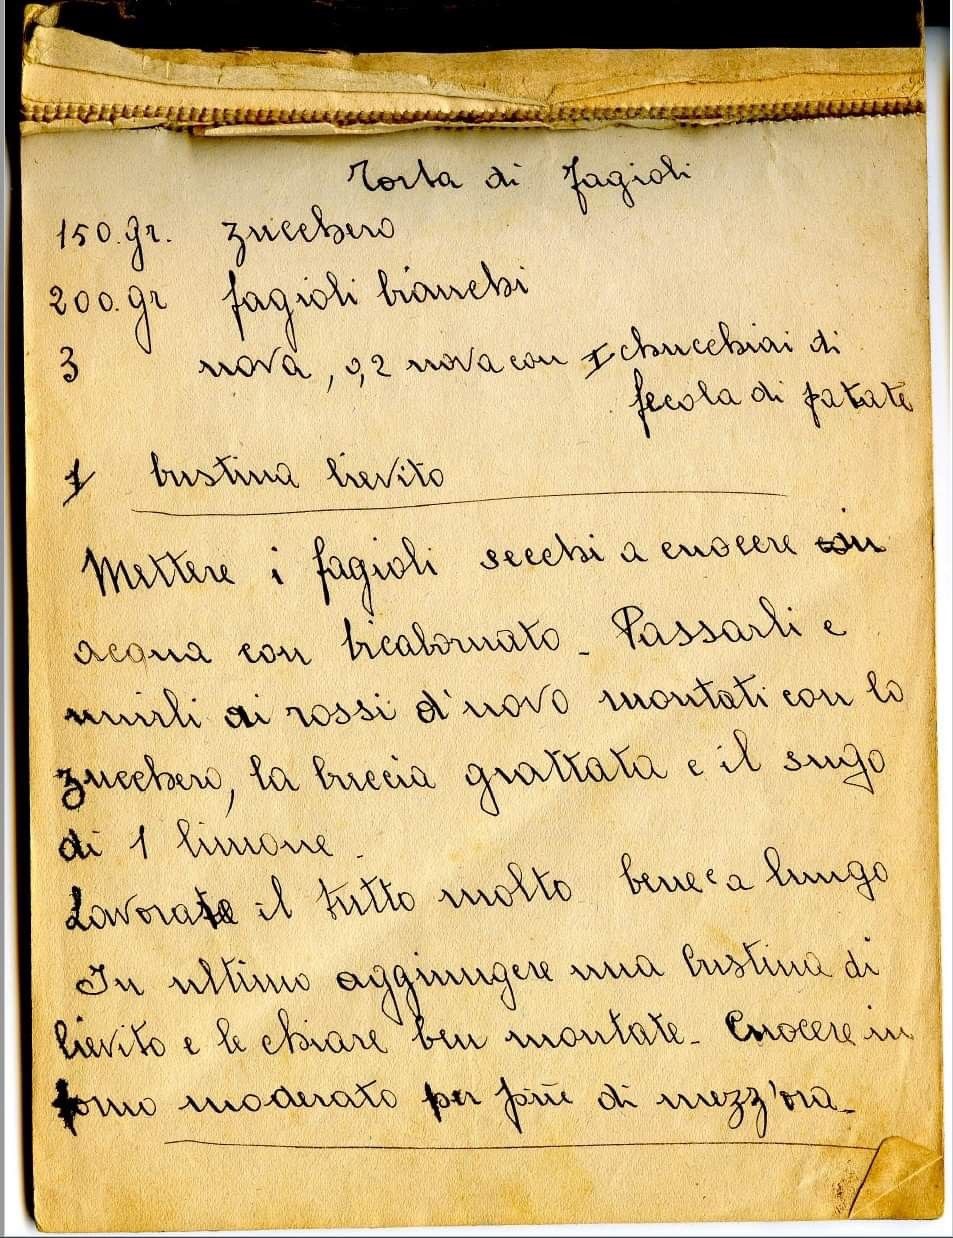 Torta di fagioli
150. gr. zucchero
200. gr fagioli bianchi
3 uova, o, 2 uova con 1 chucchiai di
fecola di patate
1 bustina lievito
Mettere i fagioli secchi a cuocere in
acqua con bicabornato - Passarli e
unirli ai rossi d'uovo montati con lo
zucchero, la buccia grattata e il sugo
di 1 limone.
Lavorate il tutto molto bene e a lungo
In ultimo aggiungere una bustina di
lievito e le chiare ben montate - Cuocere in
forno moderato per più di mezz'ora -